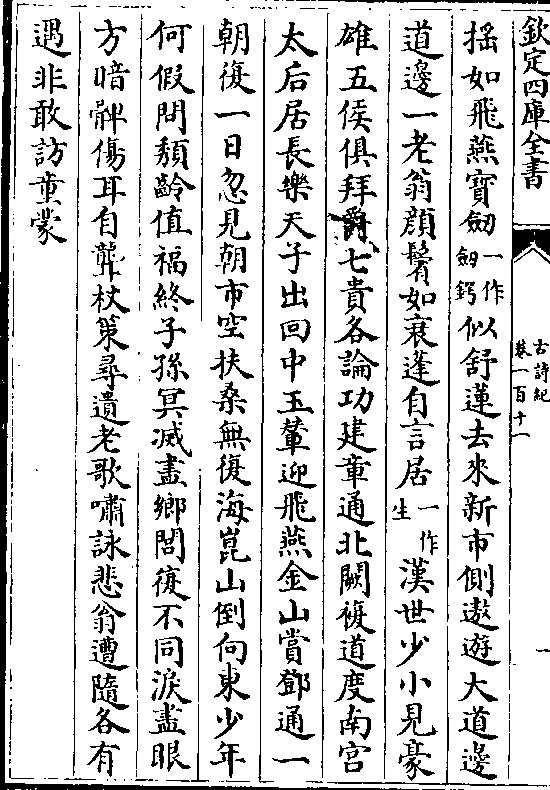 欽定四庫全書
古詩紀
卷一百十一
一
揺如飛燕寶劎一作劎鍔似舒蓮去來新市側遨遊大道邊
道邊一老翁顔鬢如衰蓬自言居一作生漢世少小見豪
雄五侯俱拜爵七貴各論功建章通北闕複道度南宫
太后居長樂天子出回中玉輦迎飛燕金山賞鄧通一
朝復一日忽見朝市空扶桑無復海崑山倒向東少年
何假問頽齡值福終子孫冥滅盡鄉閭復不同淚盡眼
方暗髀傷耳自聾杖策尋遺老歌嘯詠悲翁遭隨各有
遇非敢訪童蒙